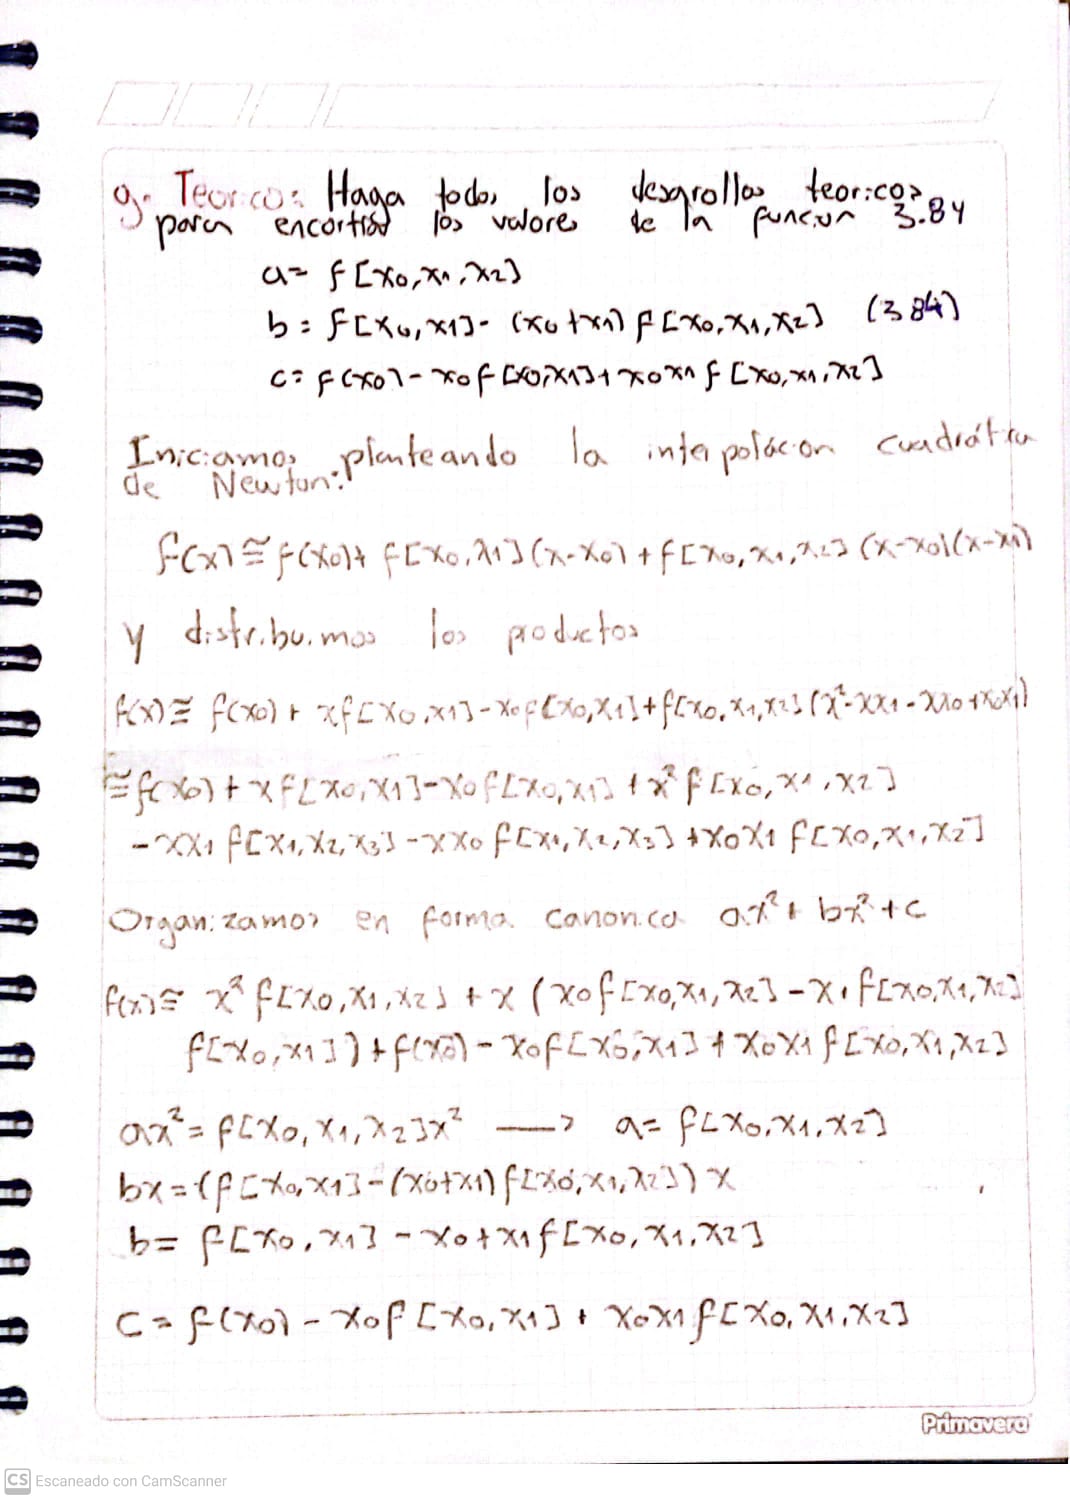 g. Teorico: Haga todos los desarrollos teoricos
para encortrar los valores de la funcion 3.84
a= f[x0,x1,x2]
b = f[x0,x1]- (x0+x1) f[x0,x1,x2] (3 84)
c= f(x0) - x0f[x0,x1]+x0x1 f[x0,x1,x2]
Iniciamos planteando la interpolacion cuadrática
de Newton:
f(x) ≅ f(x0)+ f[x0,x1](x-x0) + f[x0,x1,x2] (x-x0)(x-x1)
y distribuimos los productos
f(x) ≅ f(x0) + xf[x0,x1]-x0f[x0,x1]+f[x0,x1,x2](x²-xx1-xx0+x0x1)
≅f(x0)+xf[x0,x1]-x0f[x0,x1] +x² f[x0,x1,x2]
-xx1 f[x1,x2,x3]-xx0 f[x1,x2,x3] +x0x1 f[x0,x1,x2]
Organizamos en forma canonica ax²+ bx²+c
f(x)≅ x² f[x0,x1,x2] + x (x0f[x0,x1,x2]-x1f[x0,x1,x2]
f[x0,x1])+f(x0)- x0f[x0,x1]+x0x1 f[x0,x1,x2]
ax²= f[x0,x1,x2]x² → a= f[x0,x1,x2]
bx=(f[x0,x1]-(x0+x1)f[x0,x1,x2]) x
b= f[x0,x1] - x0+x1f[x0,x1,x2]
c= f(x0) - x0f[x0,x1] + x0x1f[x0,x1,x2]
Primavera
CS Escaneado con CamScanner